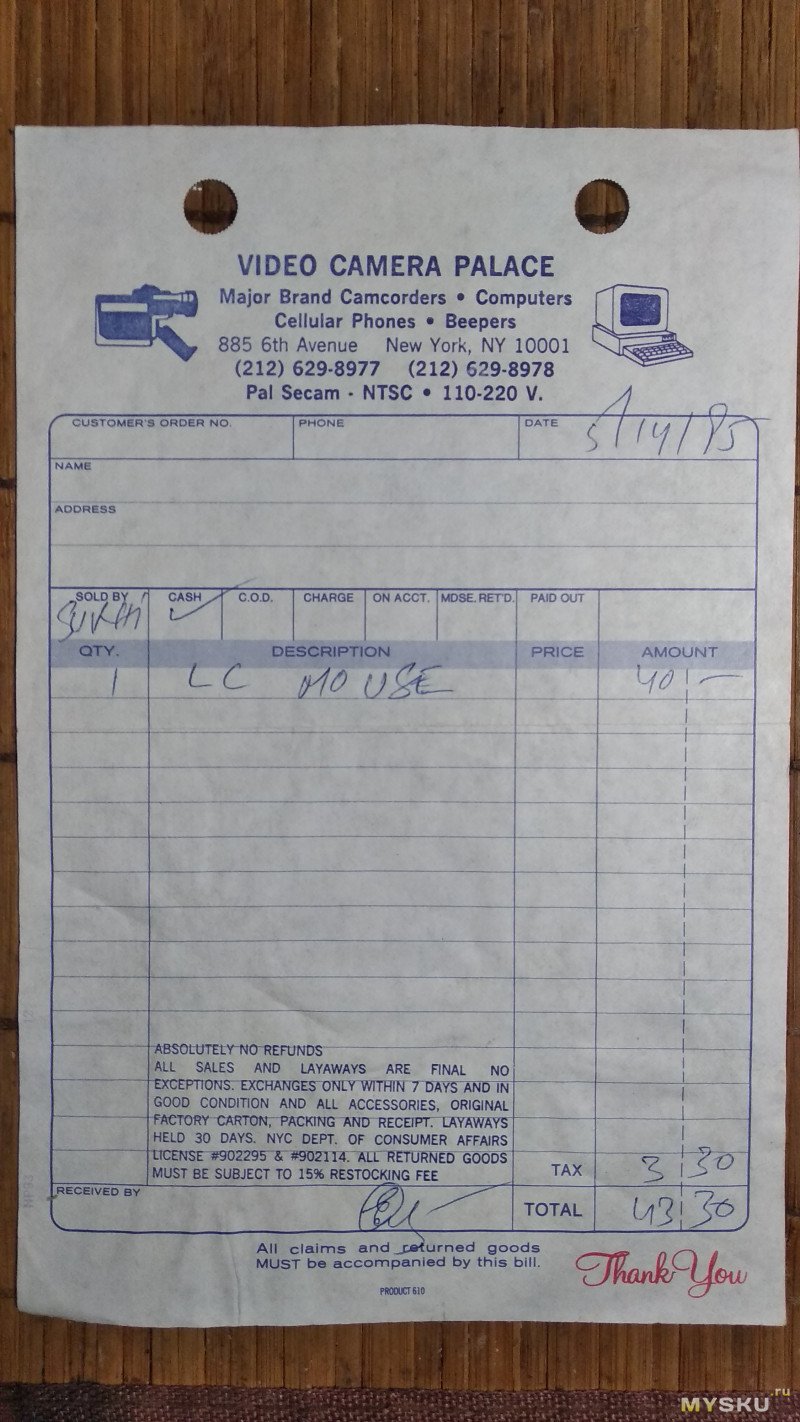 VIDEO CAMERA PALACE
Major Brand Camcorders • Computers
Cellular Phones • Beepers
885 6th Avenue New York, NY 10001
(212) 629-8977 (212) 629-8978
Pal Secam - NTSC • 110-220 V.
CUSTOMER'S ORDER NO. PHONE DATE 5/14/95
NAME
ADDRESS
SOLD BY CASH ✓ C.O.D. CHARGE ON ACCT. MDSE. RET'D. PAID OUT
QTY. DESCRIPTION PRICE AMOUNT
1 LC MOUSE 40 —
ABSOLUTELY NO REFUNDS
ALL SALES AND LAYAWAYS ARE FINAL NO
EXCEPTIONS. EXCHANGES ONLY WITHIN 7 DAYS AND IN
GOOD CONDITION AND ALL ACCESSORIES, ORIGINAL
FACTORY CARTON, PACKING AND RECEIPT. LAYAWAYS
HELD 30 DAYS. NYC DEPT. OF CONSUMER AFFAIRS
LICENSE #902295 & #902114. ALL RETURNED GOODS
MUST BE SUBJECT TO 15% RESTOCKING FEE
TAX 3 30
RECEIVED BY TOTAL 43 30
All claims and returned goods
MUST be accompanied by this bill.
Thank You
PRODUCT 610
MYSKU.ru